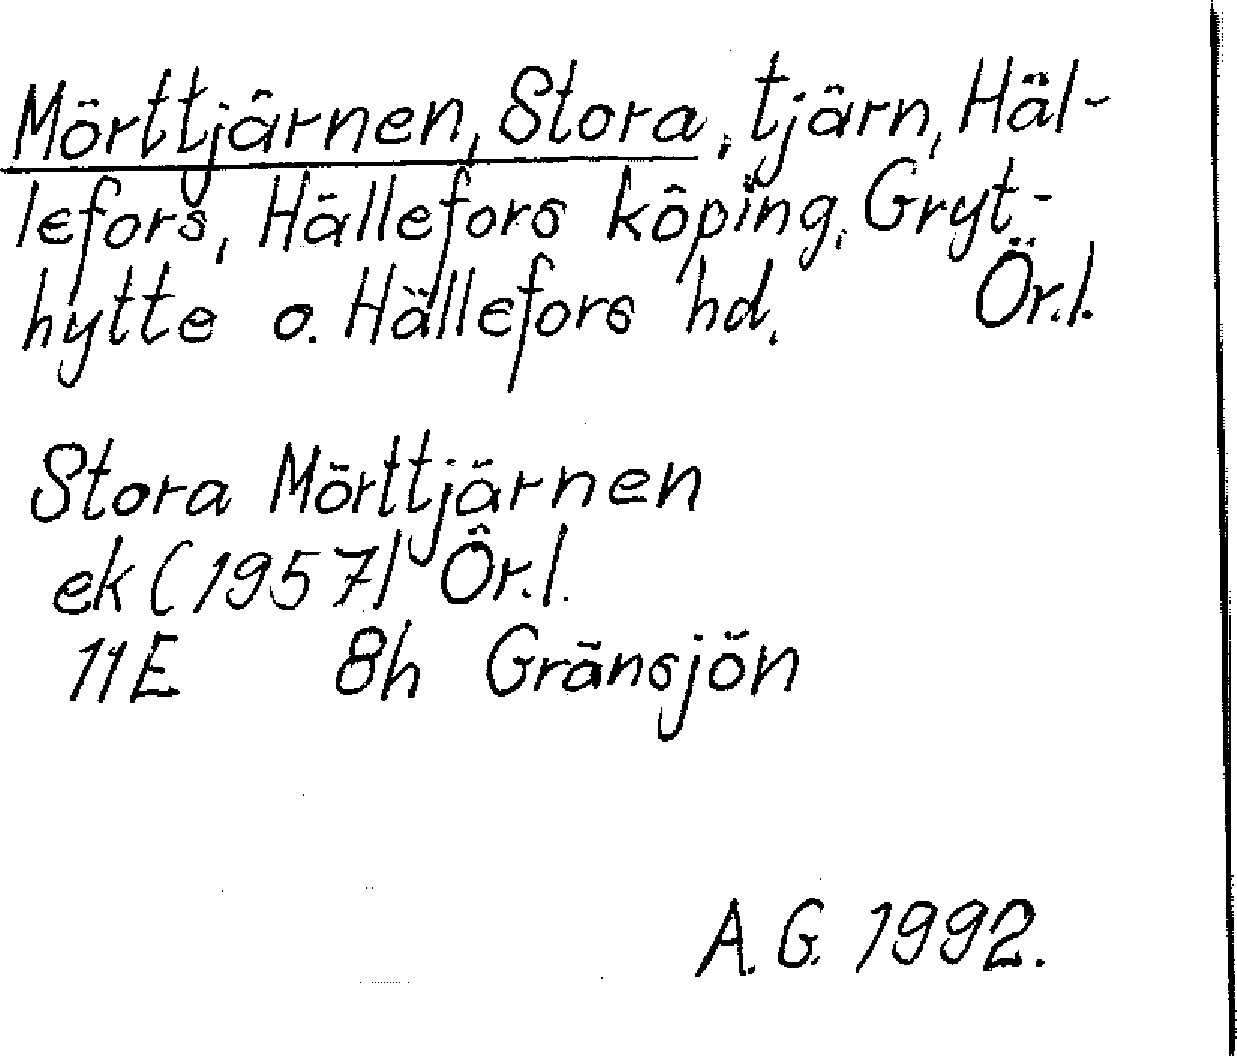 Mörttjärnen, Stora, tjärn, Häl-
lefors, Hällefors köping, Gryt-
hytte o. Hällefors hd. Ör.l.
Stora Mörttjärnen
ek (1957) Ör.l.
11E 8h Gränsjön
A.G. 1992.